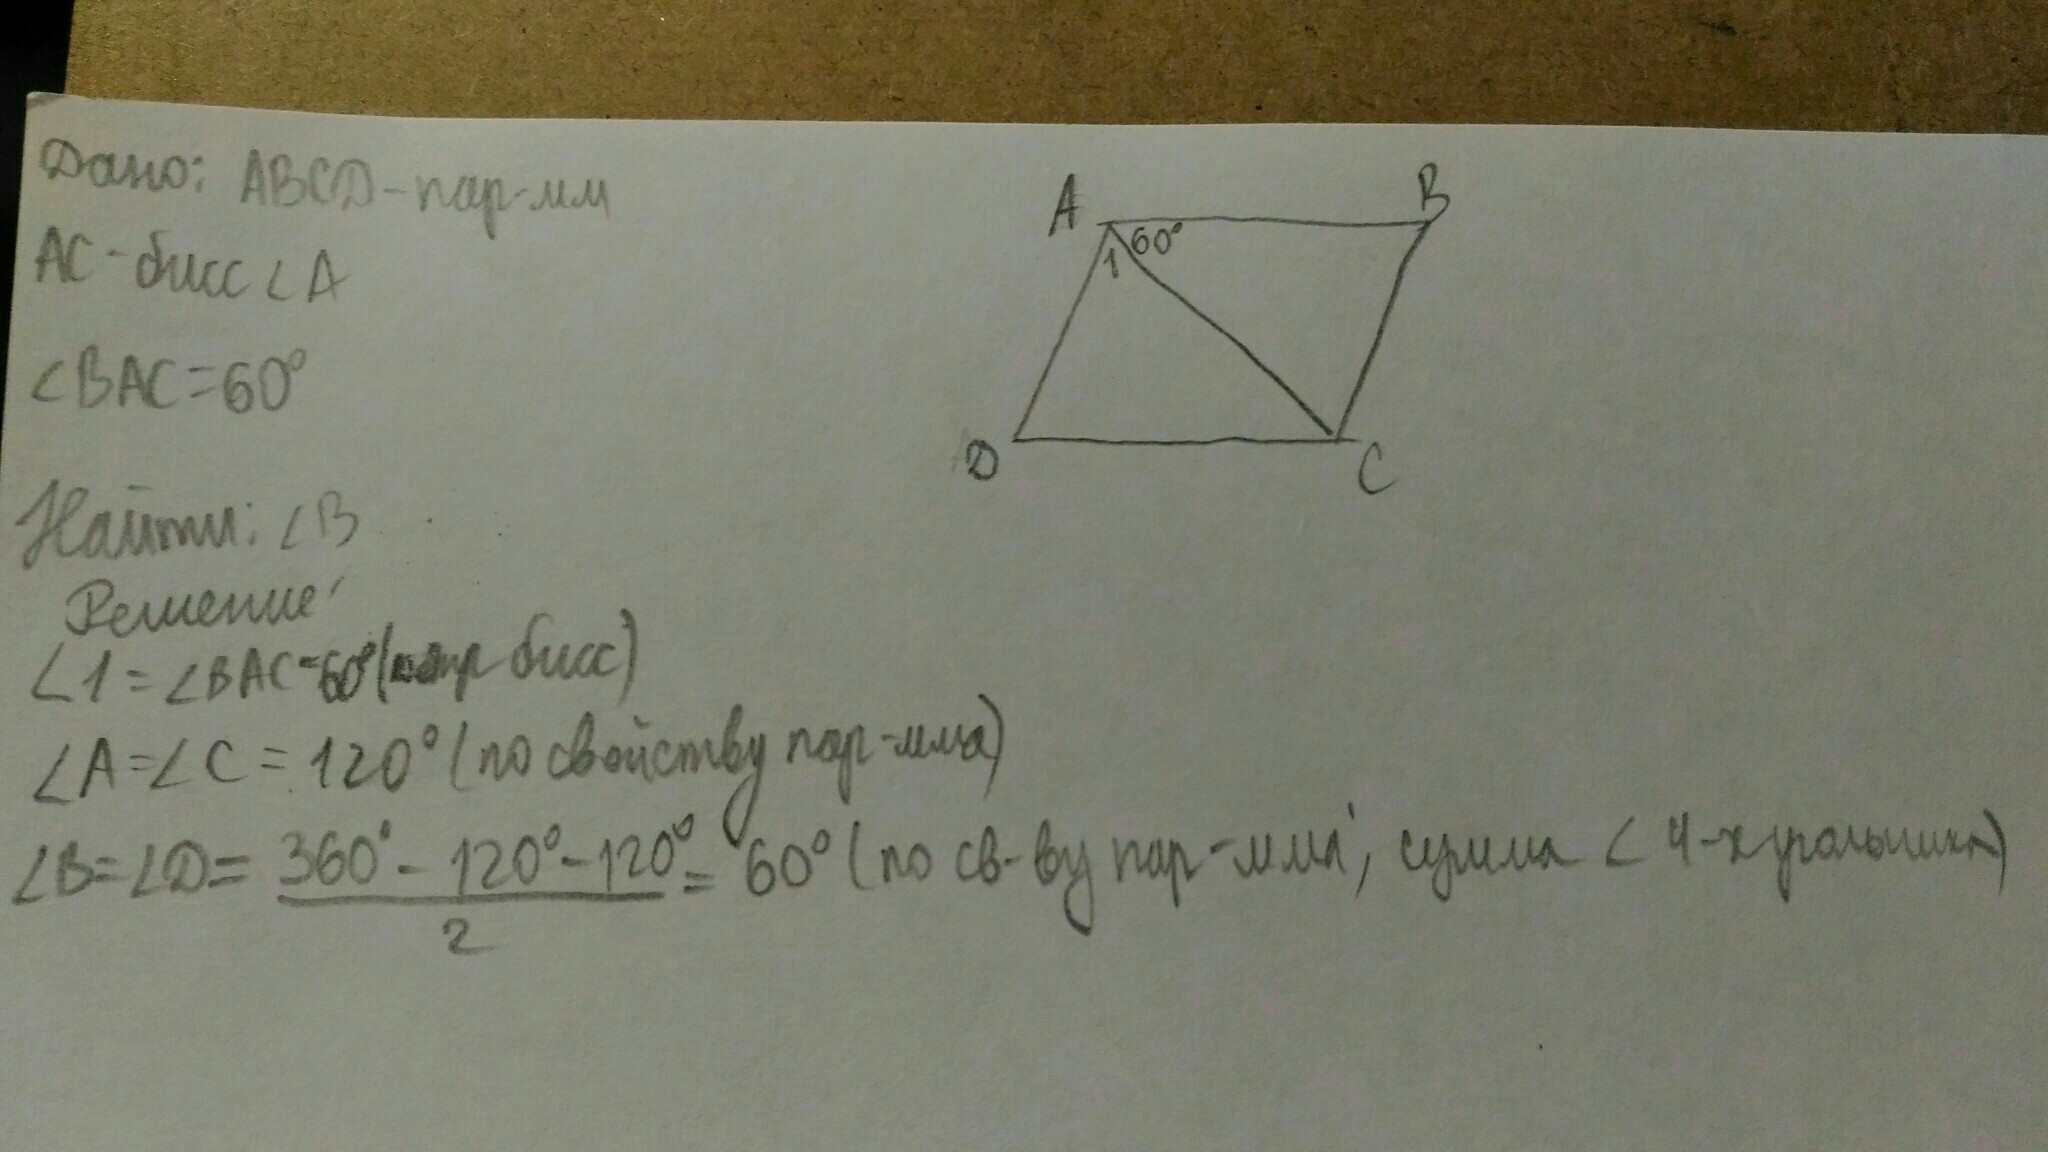 Дано: ABCD-пар-мм
AC-бисс ∠A
∠BAC=60°
Найти: ∠B
Решение:
∠1=∠BAC=60° бисс)
∠A=∠C=120° (по свойству пар-мма)
∠B=∠D= 360°-120°-120° / 2 = 60° (по св-ву пар-мма, сумма ∠ 4-хугольника)
A
B
60°
1
D
C